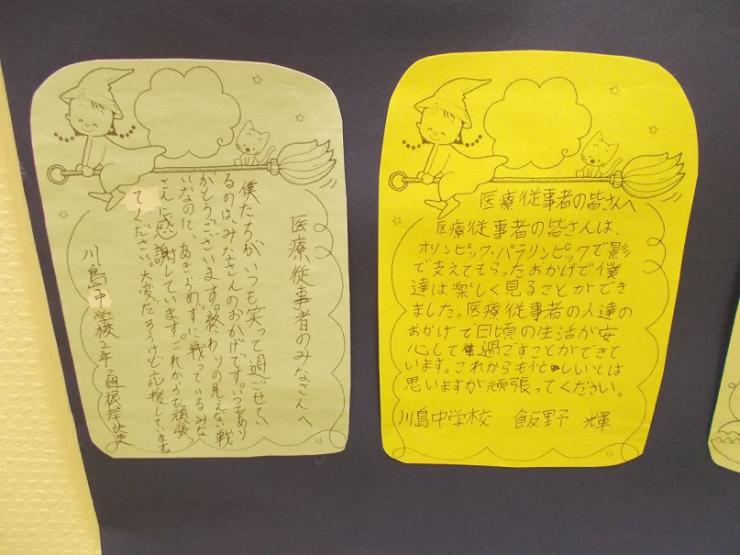 医療従事者のみなさんへ
僕たちがいつも笑って過ごせてい
るのは、みなさんのおかげです。いつもあり
がとうございます。終わりの見えない戦
いなのに、あきらめずに戦っているみな
さんに感謝しています。これからも頑張っ
てください。大変だろうけど応援しています。
川島中学校2年 根岸
医療従事者の皆さんへ
医療従事者の皆さんは、
オリンピック・パラリンピックで影
で支えてもらったおかげで僕
達は楽しく見ることができ
ました。医療従事者の人達の
おかげで日頃の生活が安
心して過ごすことができて
います。これからも忙しいとは
思いますが頑張ってください。
川島中学校 飯野 輝